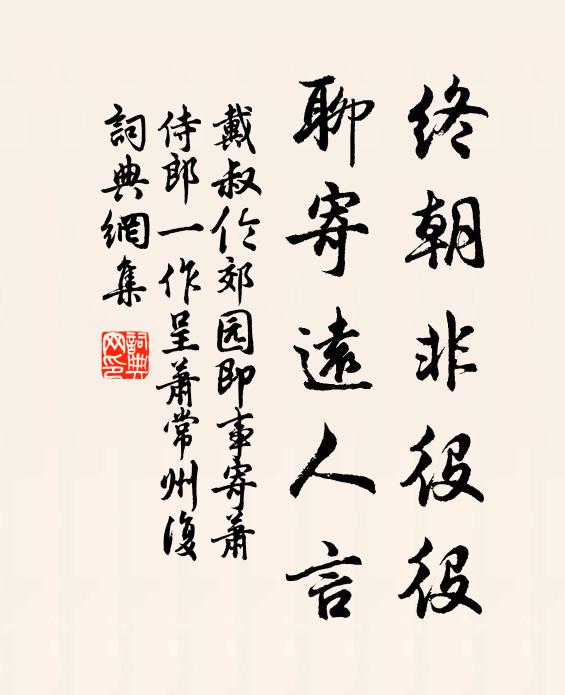 終朝非役役
聊寄遠人言
戴叔伦郊园即事寄蕭
侍郎一作呈蕭常州復
詞典網集
詞典
网印